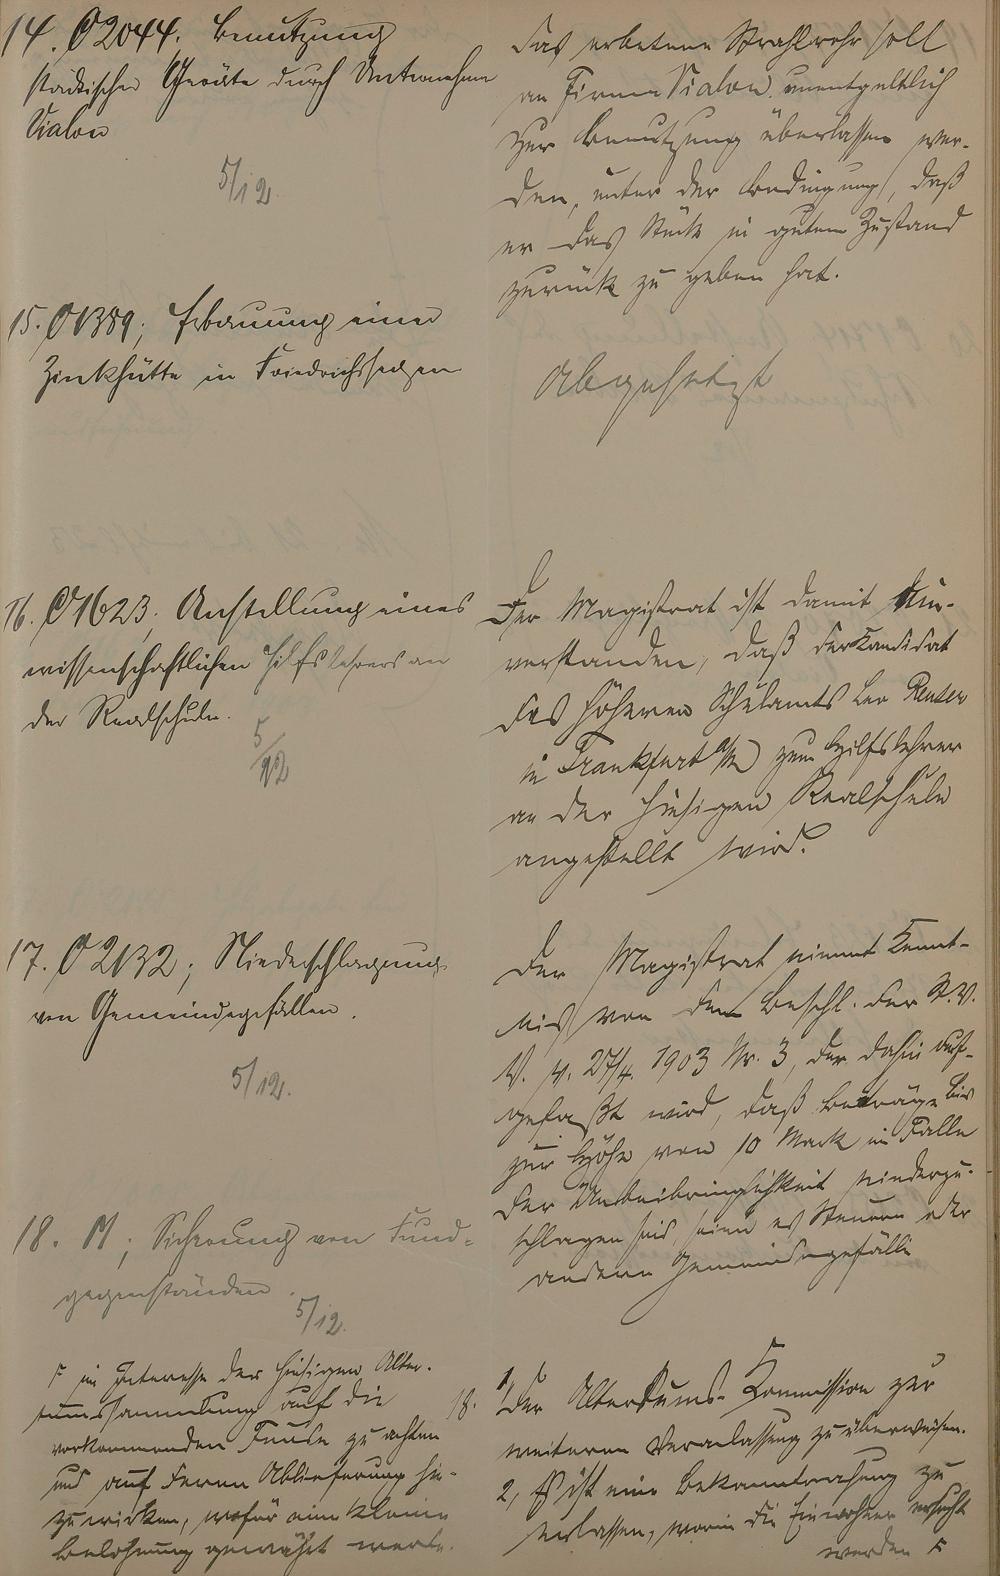 14. C 2044. Benutzung
städtischer Geräte durch Unternehmer
Sialon
5/12.
Das erbetene Strahlrohr soll
an Firma Sialon unentgeltlich
zur Benutzung überlassen wer-
den, unter der Bedingung, daß
er das Stück in gutem Zustand
zurück zu geben hat.
15. C 1389; Erbauung einer
Zinkhütte in Friedrichssegen
Abgesetzt
16. C 1623. Anstellung eines
wissenschaftlichen Hilfslehrers an
der Realschule.
5/12
Der Magistrat ist damit ein-
verstanden, daß der Kandidat
des höheren Schulamts Leo Reuter
in Frankfurt a/M zum Hilfslehrer
an der hiesigen Realschule
angestellt wird.
17. C 2132; Niederschlagung
von Gemeindegefällen.
5/12.
Der Magistrat nimmt Kennt-
nis von dem Beschl. der St.V.
V. v. 27/4. 1903 Nr. 3, der dahin auf-
gefaßt wird, daß Beträge bis
zur Höhe von 10 Mark im Falle
der Unbeibringlichkeit niederzu-
schlagen sind, seien es Steuern oder
andere Gemeindegefälle
18. M; Sicherung von Fund-
gegenständen.
5/12.
18. 1, Der Altertums-Kommission zur
weiteren Veranlassung zu überweisen.
2, Es ist eine Bekanntmachung zu
erlassen, worin die Einwohner ersucht
werden F
F im Interesse der hiesigen Alter-
tumssammlung auf die
vorkommenden Funde zu achten
und auf deren Ablieferung hin-
zuwirken, wofür eine kleine
Belohnung gewährt werde.